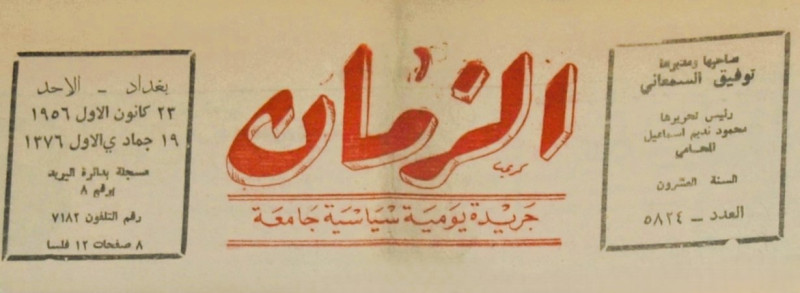 صاحبها ومديرها
توفيق السمعاني
رئيس تحريرها
محمود نديم اسماعيل
المحامي
السنة العشرون
العدد - ٥٨٢٤
الزمان
كريم
جريدة يومية سياسية جامعة
بغداد - الاحد
٢٣ كانون الاول ١٩٥٦
١٩ جمادي الاول ١٣٧٦
مسجلة بدائرة البريد
برقم ٨
رقم التلفون ٧١٨٢
٨ صفحات ١٢ فلسا